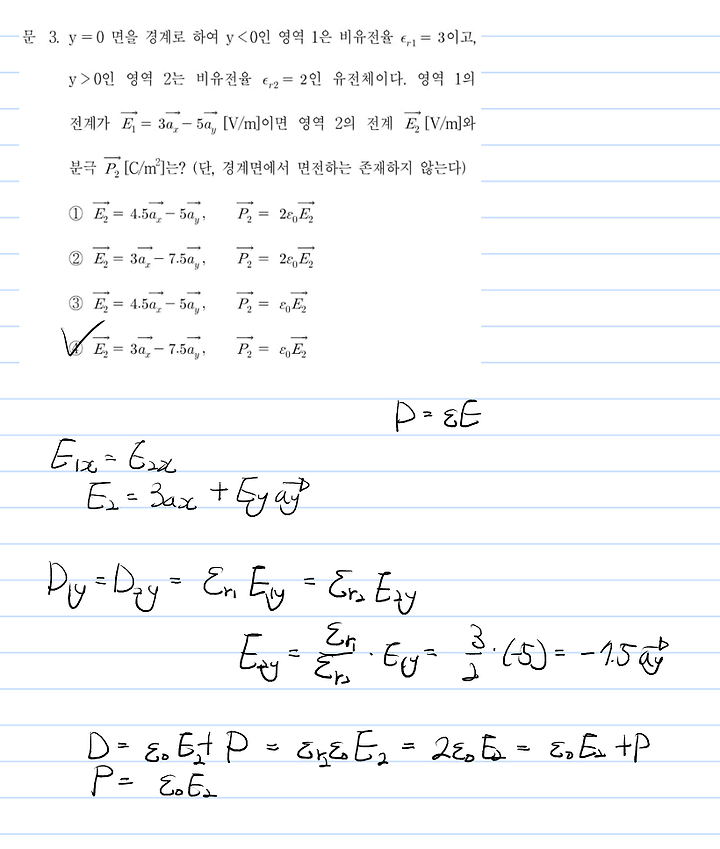 문 3. y=0 면을 경계로 하여 y<0인 영역 1은 비유전율 ε_r1 = 3이고,
y>0인 영역 2는 비유전율 ε_r2 = 2인 유전체이다. 영역 1의
전계가 E₁ = 3a_x − 5a_y [V/m]이면 영역 2의 전계 E₂ [V/m]와
분극 P₂ [C/m²]는? (단, 경계면에서 면전하는 존재하지 않는다)
① E₂ = 4.5a_x − 5a_y, P₂ = 2ε₀E₂
② E₂ = 3a_x − 7.5a_y, P₂ = 2ε₀E₂
③ E₂ = 4.5a_x − 5a_y, P₂ = ε₀E₂
④ E₂ = 3a_x − 7.5a_y, P₂ = ε₀E₂
D = εE
E1x = E2x
E₂ = 3ax + Ey ay
D1y = D2y = εr1 E1y = εr2 E2y
E2y = εr1/εr2 · E1y = 3/2 · (-5) = -7.5 ay
D = ε₀E₂ + P = εr2ε₀E₂ = 2ε₀E₂ = ε₀E₂ + P
P = ε₀E₂